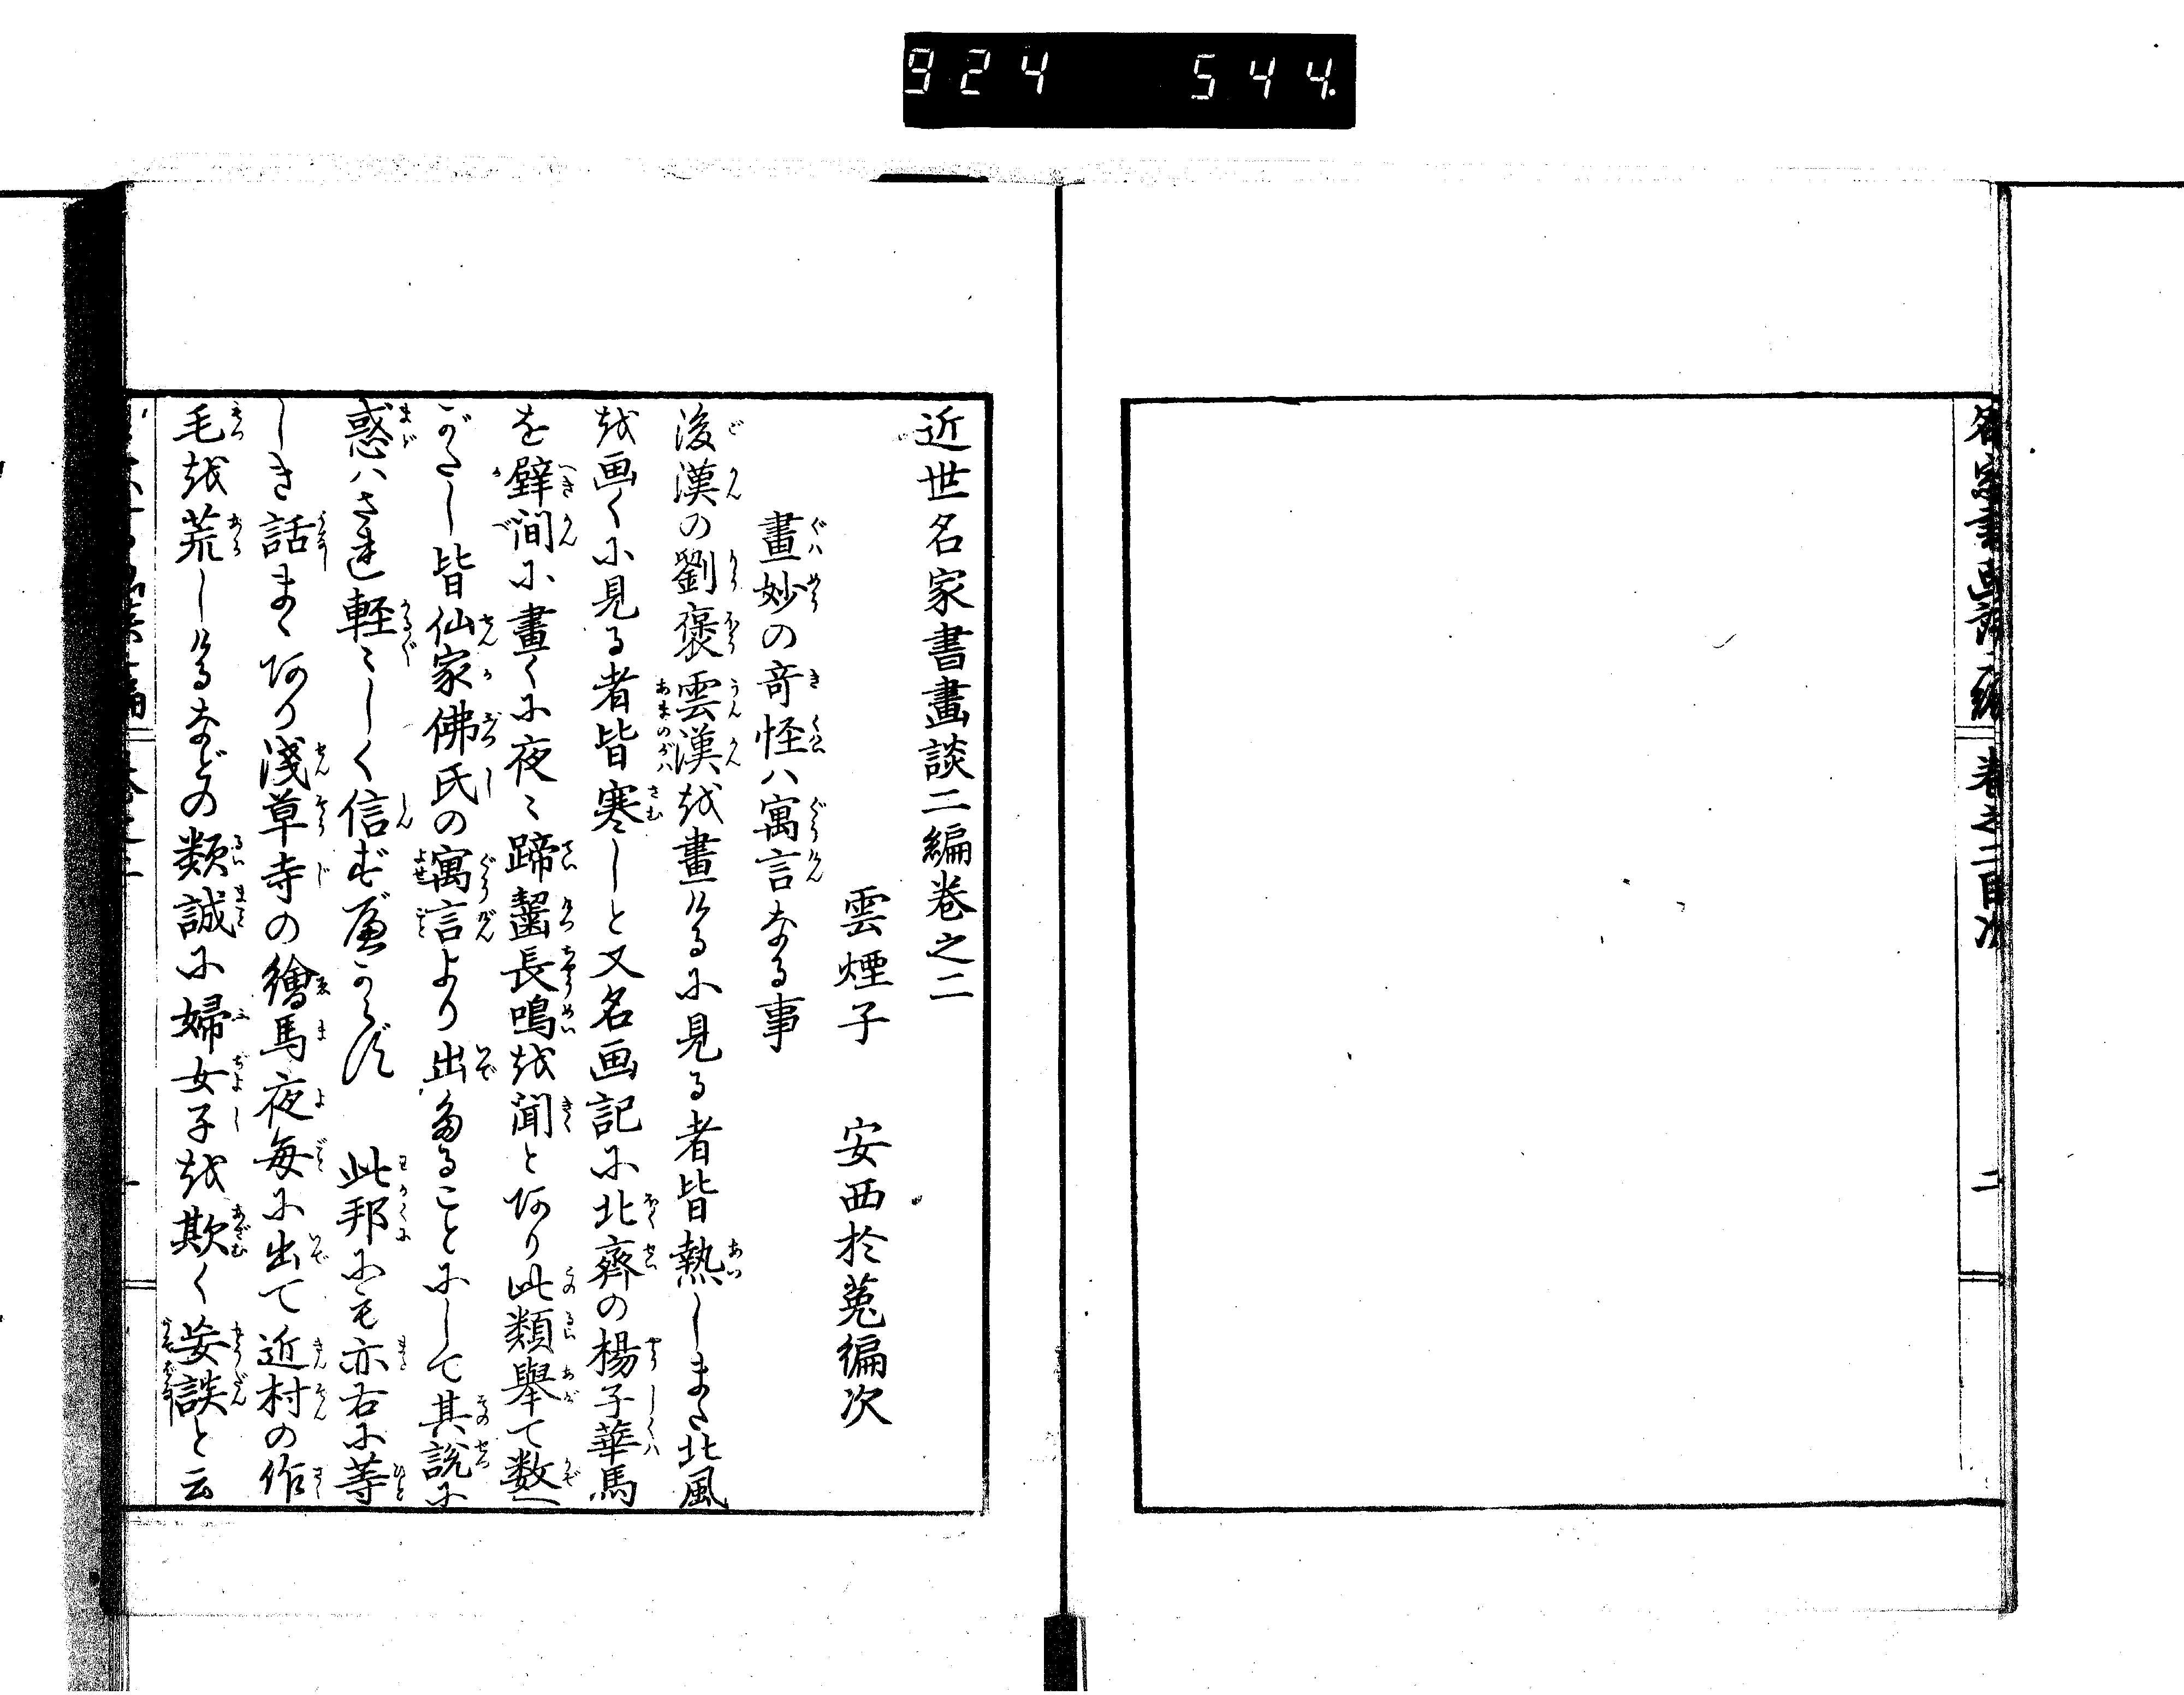 924 544
名家書画談二編 卷之二目次 二
近世名家書畫談二編卷之二
雲煙子 安西於菟編次
畫妙の竒怪ハ寓言なる事
後漢の劉褒雲漢を畫けるに見る者皆熱しまた北風
を画くに見る者皆寒しと又名画記に北齊の楊子華馬
を壁间に畫くに夜〻蹄齧長鳴を聞とあり此類舉て数へ
がたし皆仙家佛氏の寓言より出たることにして其説に
惑ハされ軽〻しく信ずべからず 此邦にも亦右に等
しき話まゝあり淺草寺の繪馬夜毎に出て近村の作
毛を荒しけるなどの類誠に婦女子を欺く妄談と云